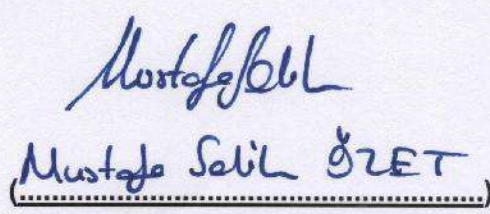 Mustafa Salih
Mustafa Salih ÖZET
(......................................................)